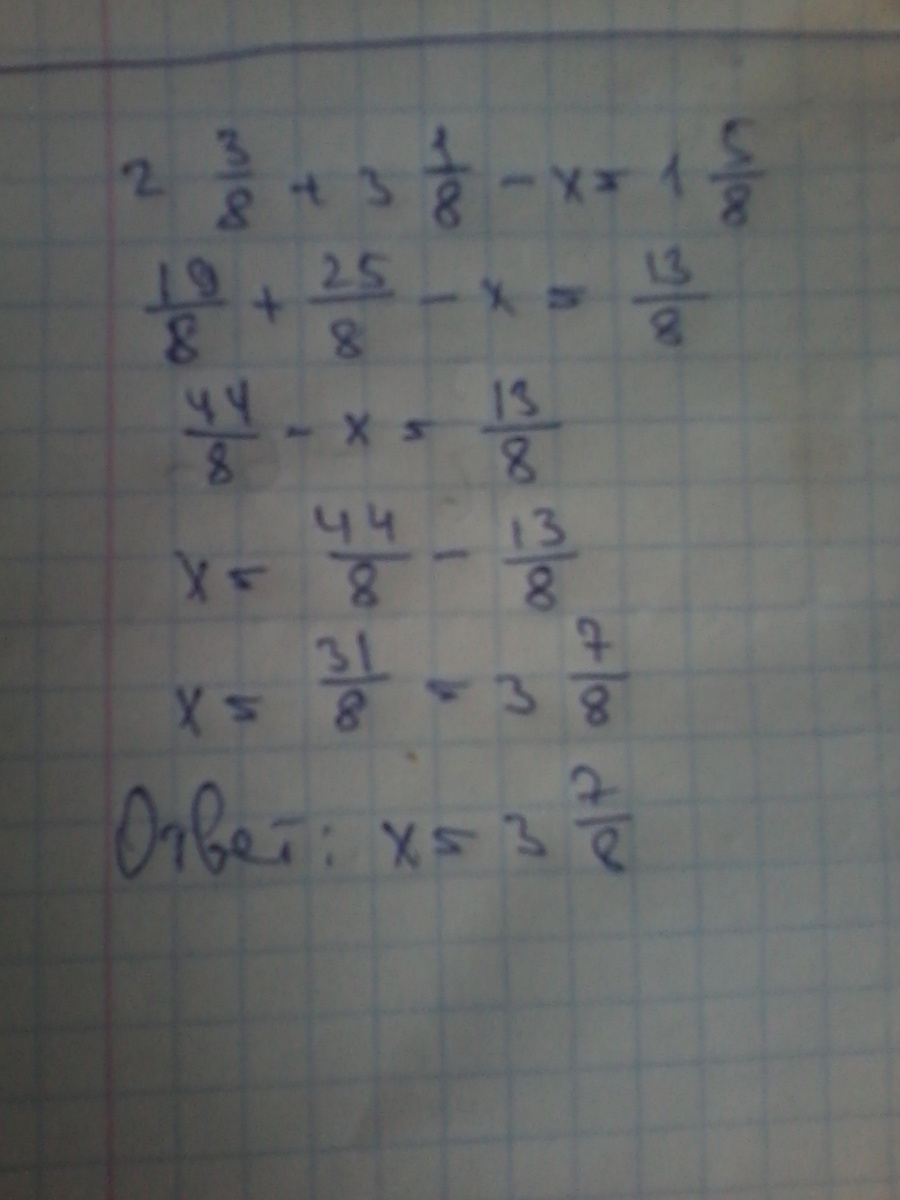 2 3/8 + 3 1/8 - x = 1 5/8
19/8 + 25/8 - x = 13/8
44/8 - x = 13/8
x = 44/8 - 13/8
x = 31/8 = 3 7/8
Ответ: x = 3 7/8